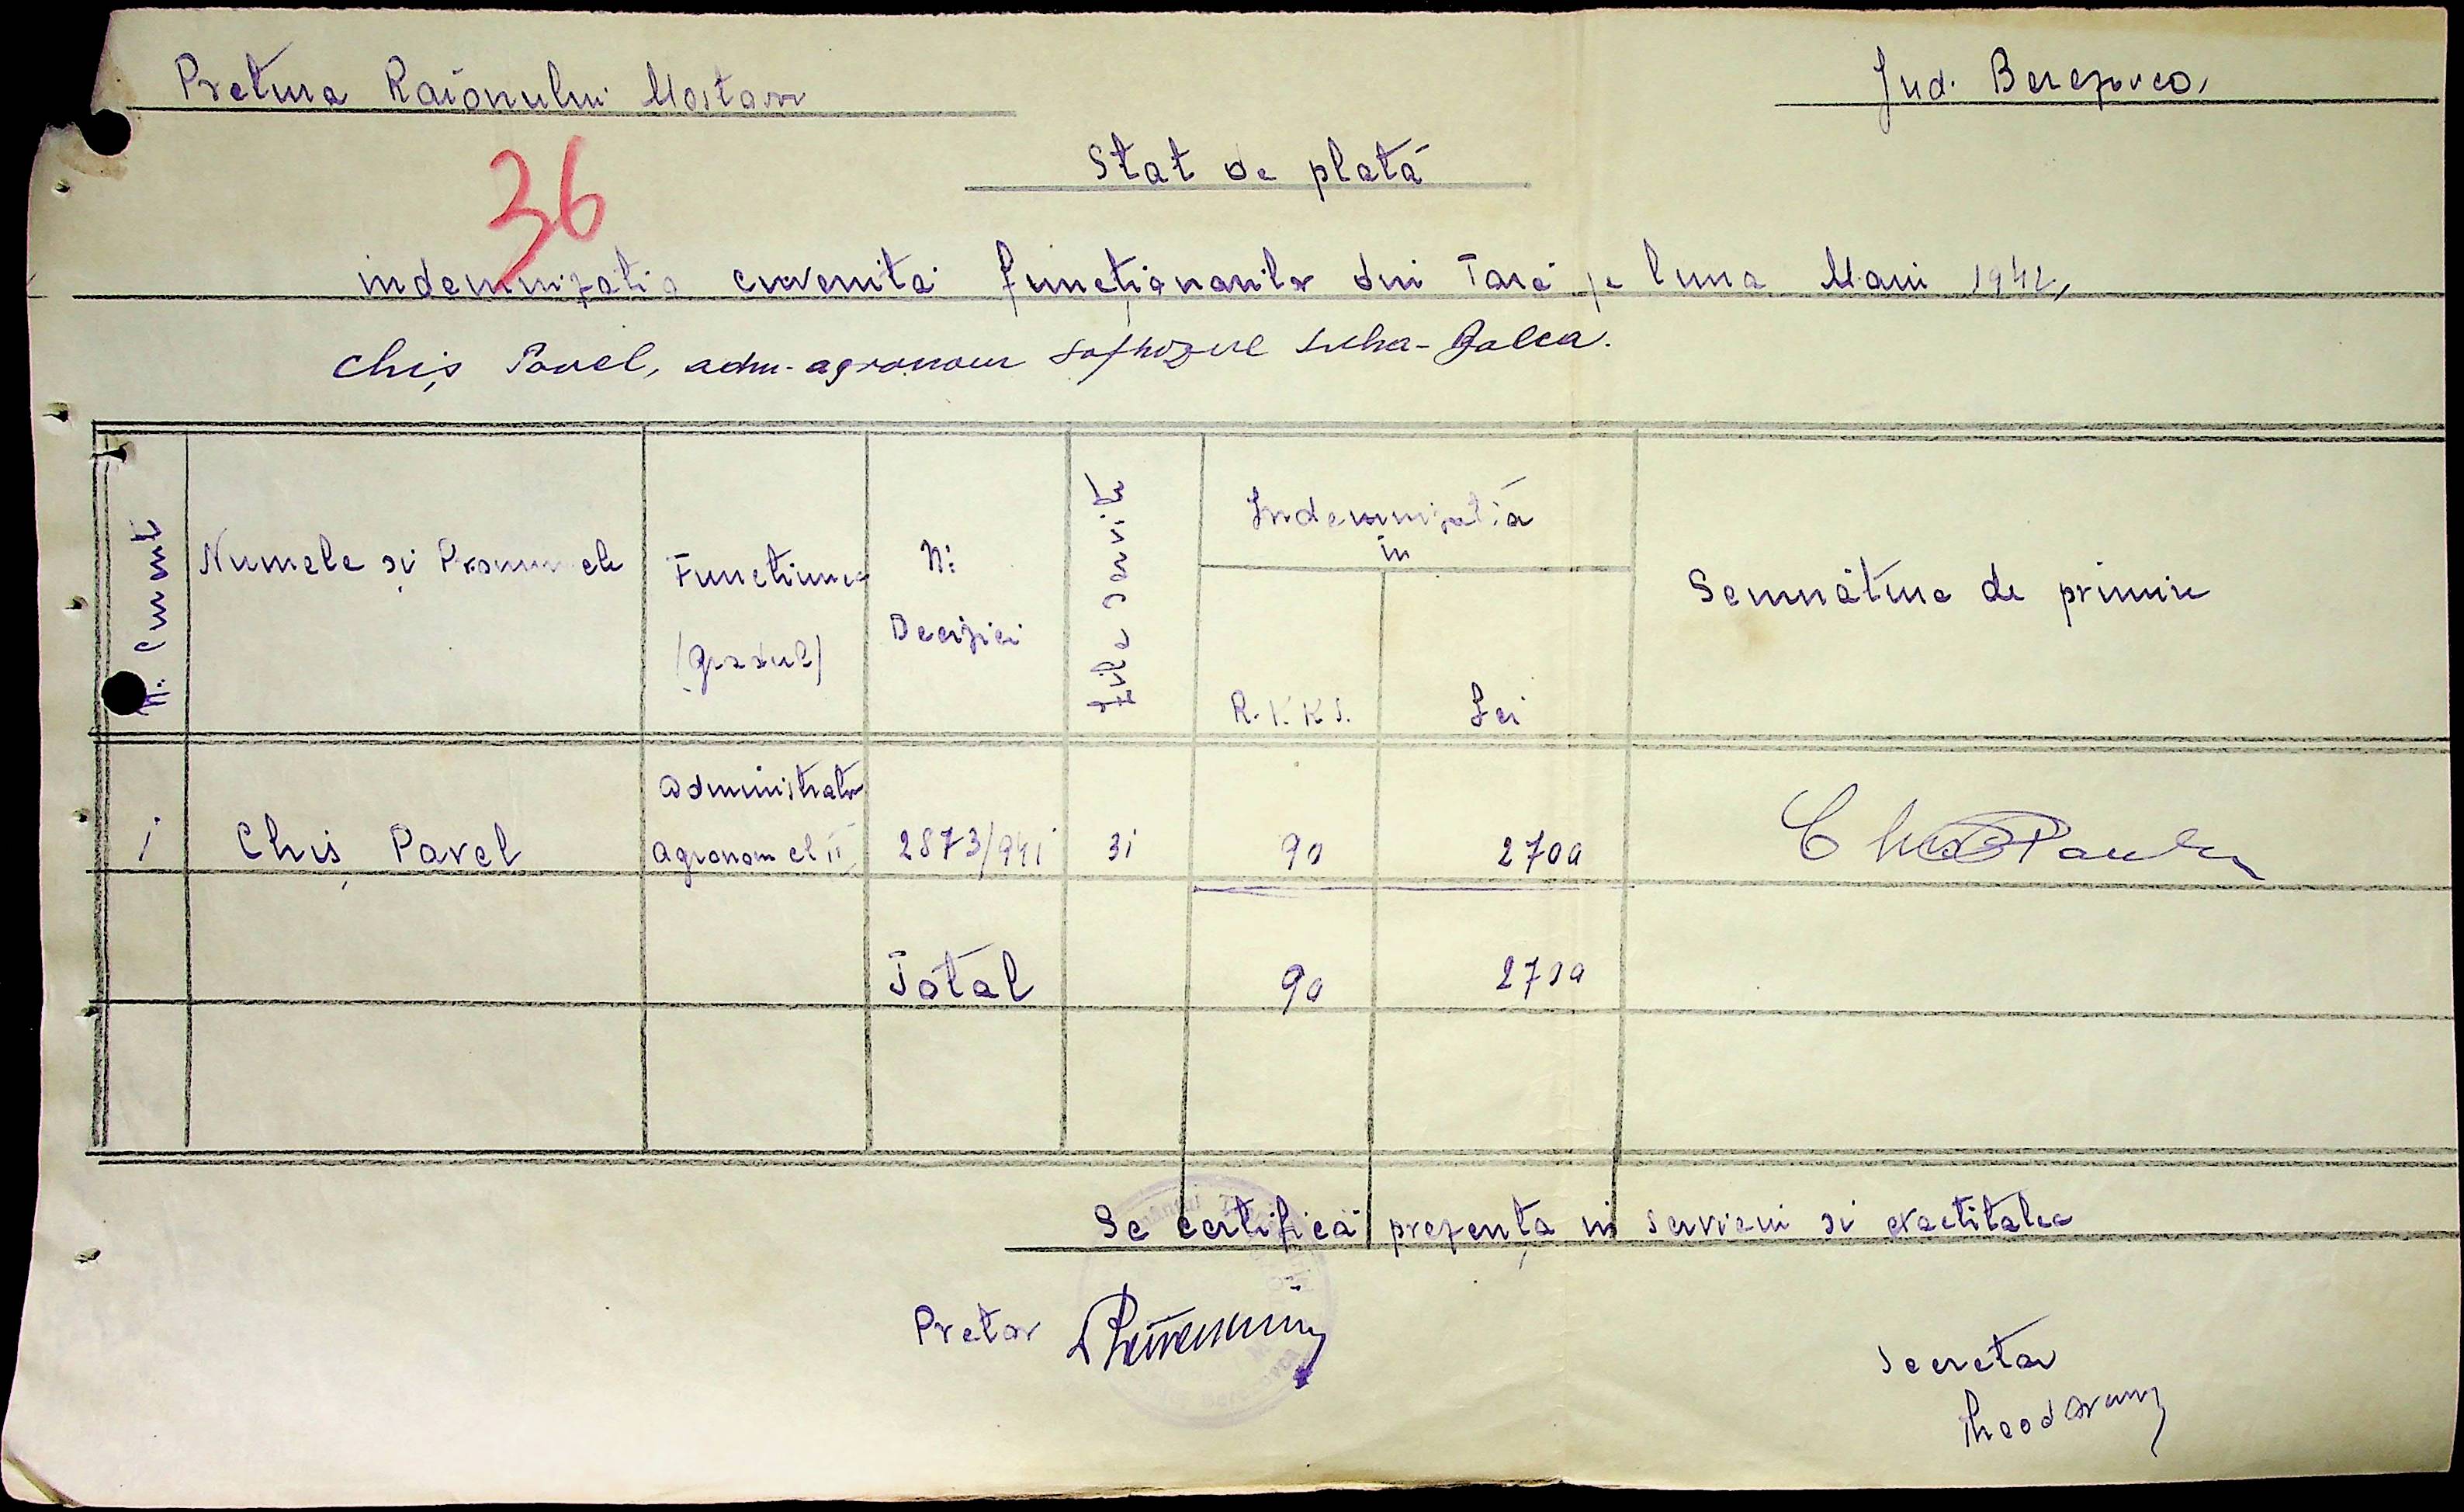 Pretura Raionului Mostovoi
Jud. Berezovca
36
Stat de plată
indemnizatia cuvenită funcționarilor din Tară pe luna Maiu 1942,
Chiș Pavel, adm-agronom Sofhozul Suha-Balca.
N. Curent
Numele și Pronumele
Functiunea
(gradul)
N:
Deciziei
Zile servite
Indemnizatia
in
R.K.K.S.
Lei
Semnătura de primire
1 Chiș Pavel administrator agronom cl II 2873/941 31 90 2700
Total 90 2700
Se certifică prezența in serviciu si exactitatea
Pretor
Secretar
Theodoranu